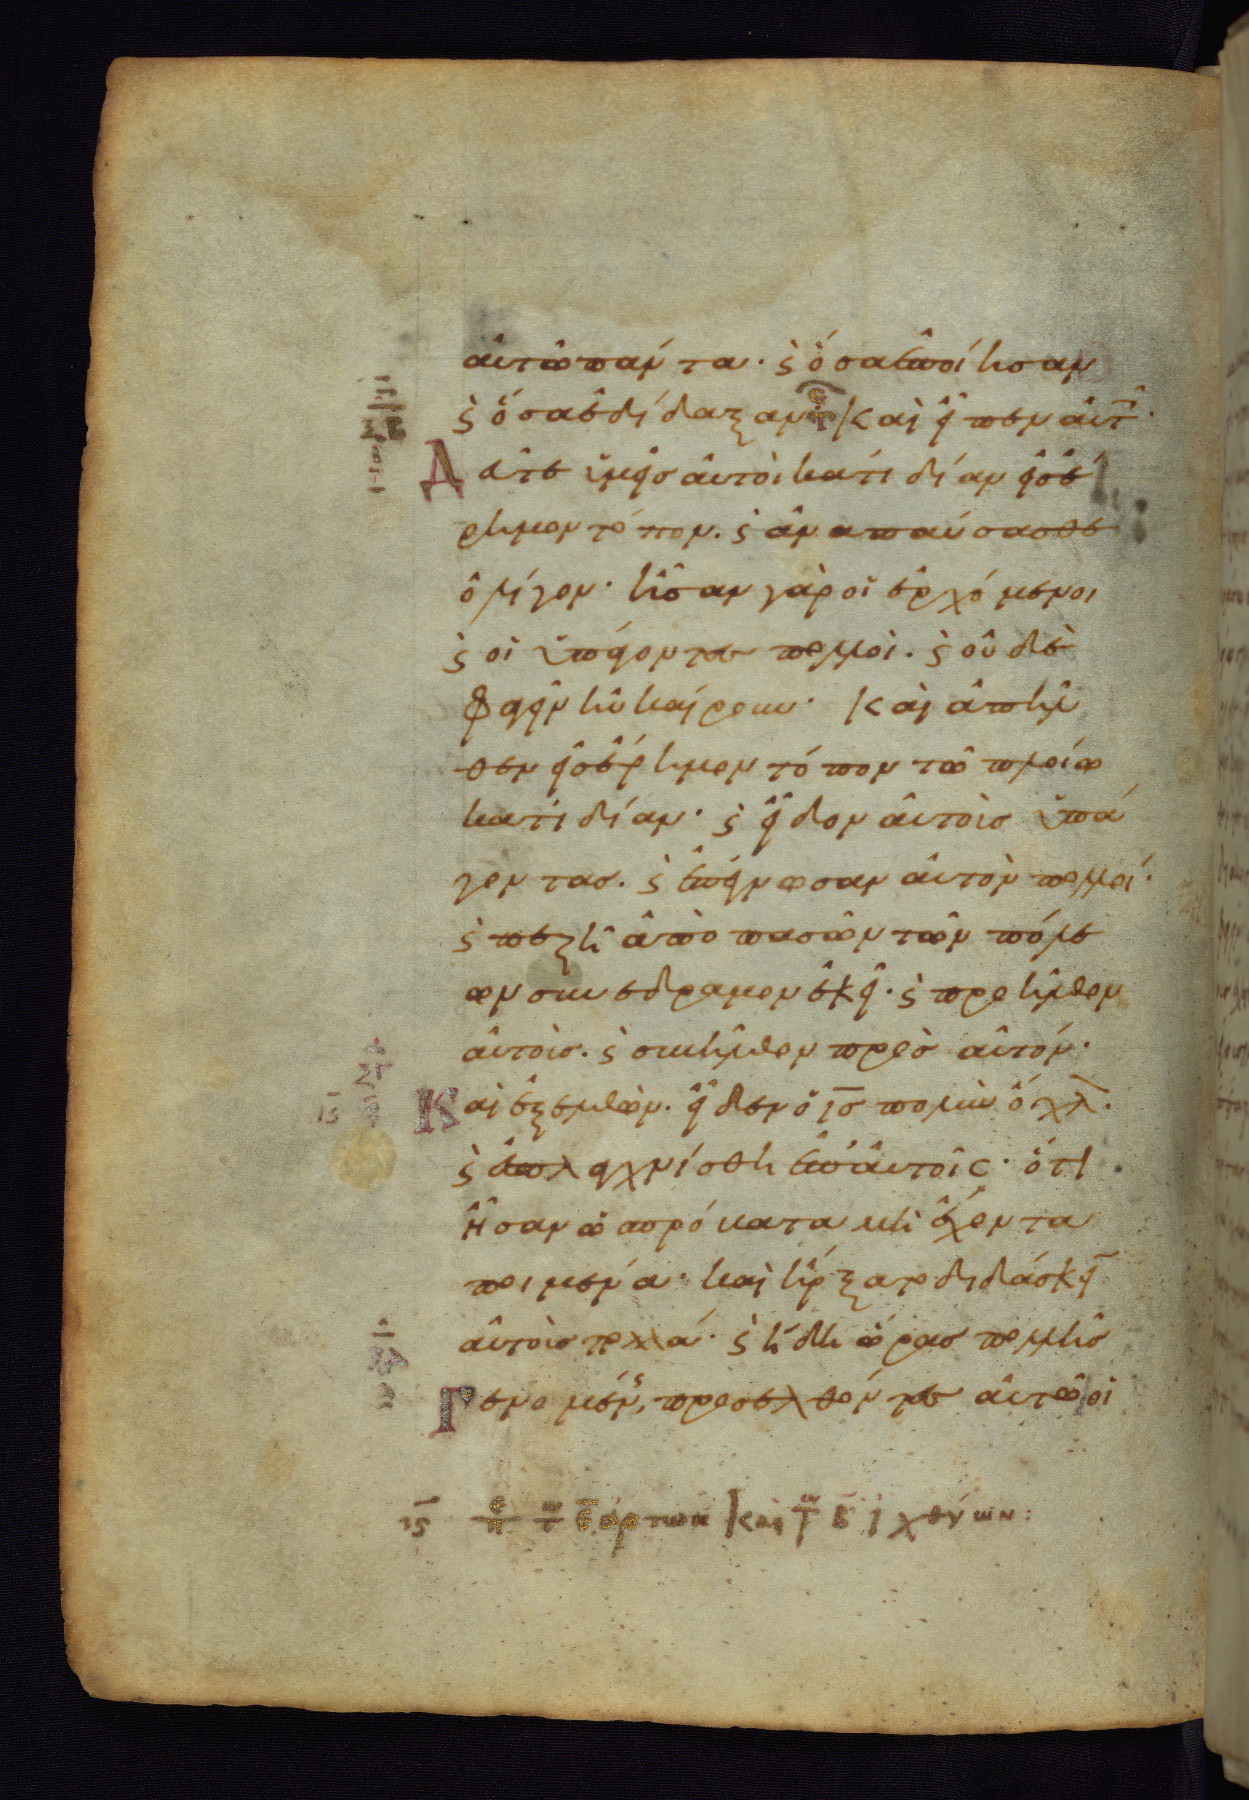 αὐτῶ πάντα· ϛ ὅσα ἐποίησαν
ϛ ὅσα ἐδίδαξαν καὶ εἶπεν αὐτ
Δεῦτε ὑμεῖς αὐτοὶ κατιδίαν εἰς ἔ
ρημον τόπον. ϛ ἀναπαύσασθε
ὀλίγον· ἦσαν γὰρ οἱ ἐρχόμενοι
ϛ οἱ ὑπάγοντες πολλοὶ. ϛ οὐδὲ
φαγεῖν ηὐκαίρουν· Καὶ ἀπῆλ
θεν εἰς ἔρημον τόπον τῶ πλοίω
κατιδίαν· ϛ εἶδον αὐτοὺς ὑπά
γοντας. ϛ ἐπέγνωσαν αὐτὸν πολλοί·
ϛ πεζῆ ἀπὸ πασῶν τῶν πόλε
ων συνέδραμον ἐκεῖ· ϛ προῆλθον
αὐτοὺς. ϛ συνῆλθον πρὸς αὐτόν·
Καὶ ἐξελθὼν· εἶδεν ὁ ις πολὺν ὄχλ.
ϛ ἐσπλαγχνίσθη ἐπ' αὐτοῖς· ὅτι
ἦσαν ὡς πρόβατα μὴ ἔχοντα
ποιμένα· καὶ ἤρξατο διδάσκει
αὐτοὺς πολλά· ϛ ἤδη ὥρας πολλῆς
Γενομέν, προσελθόντες αὐτῶ οἱ
ιϛ πε τ ε ἄρτων καὶ τ β ἰχθύων: